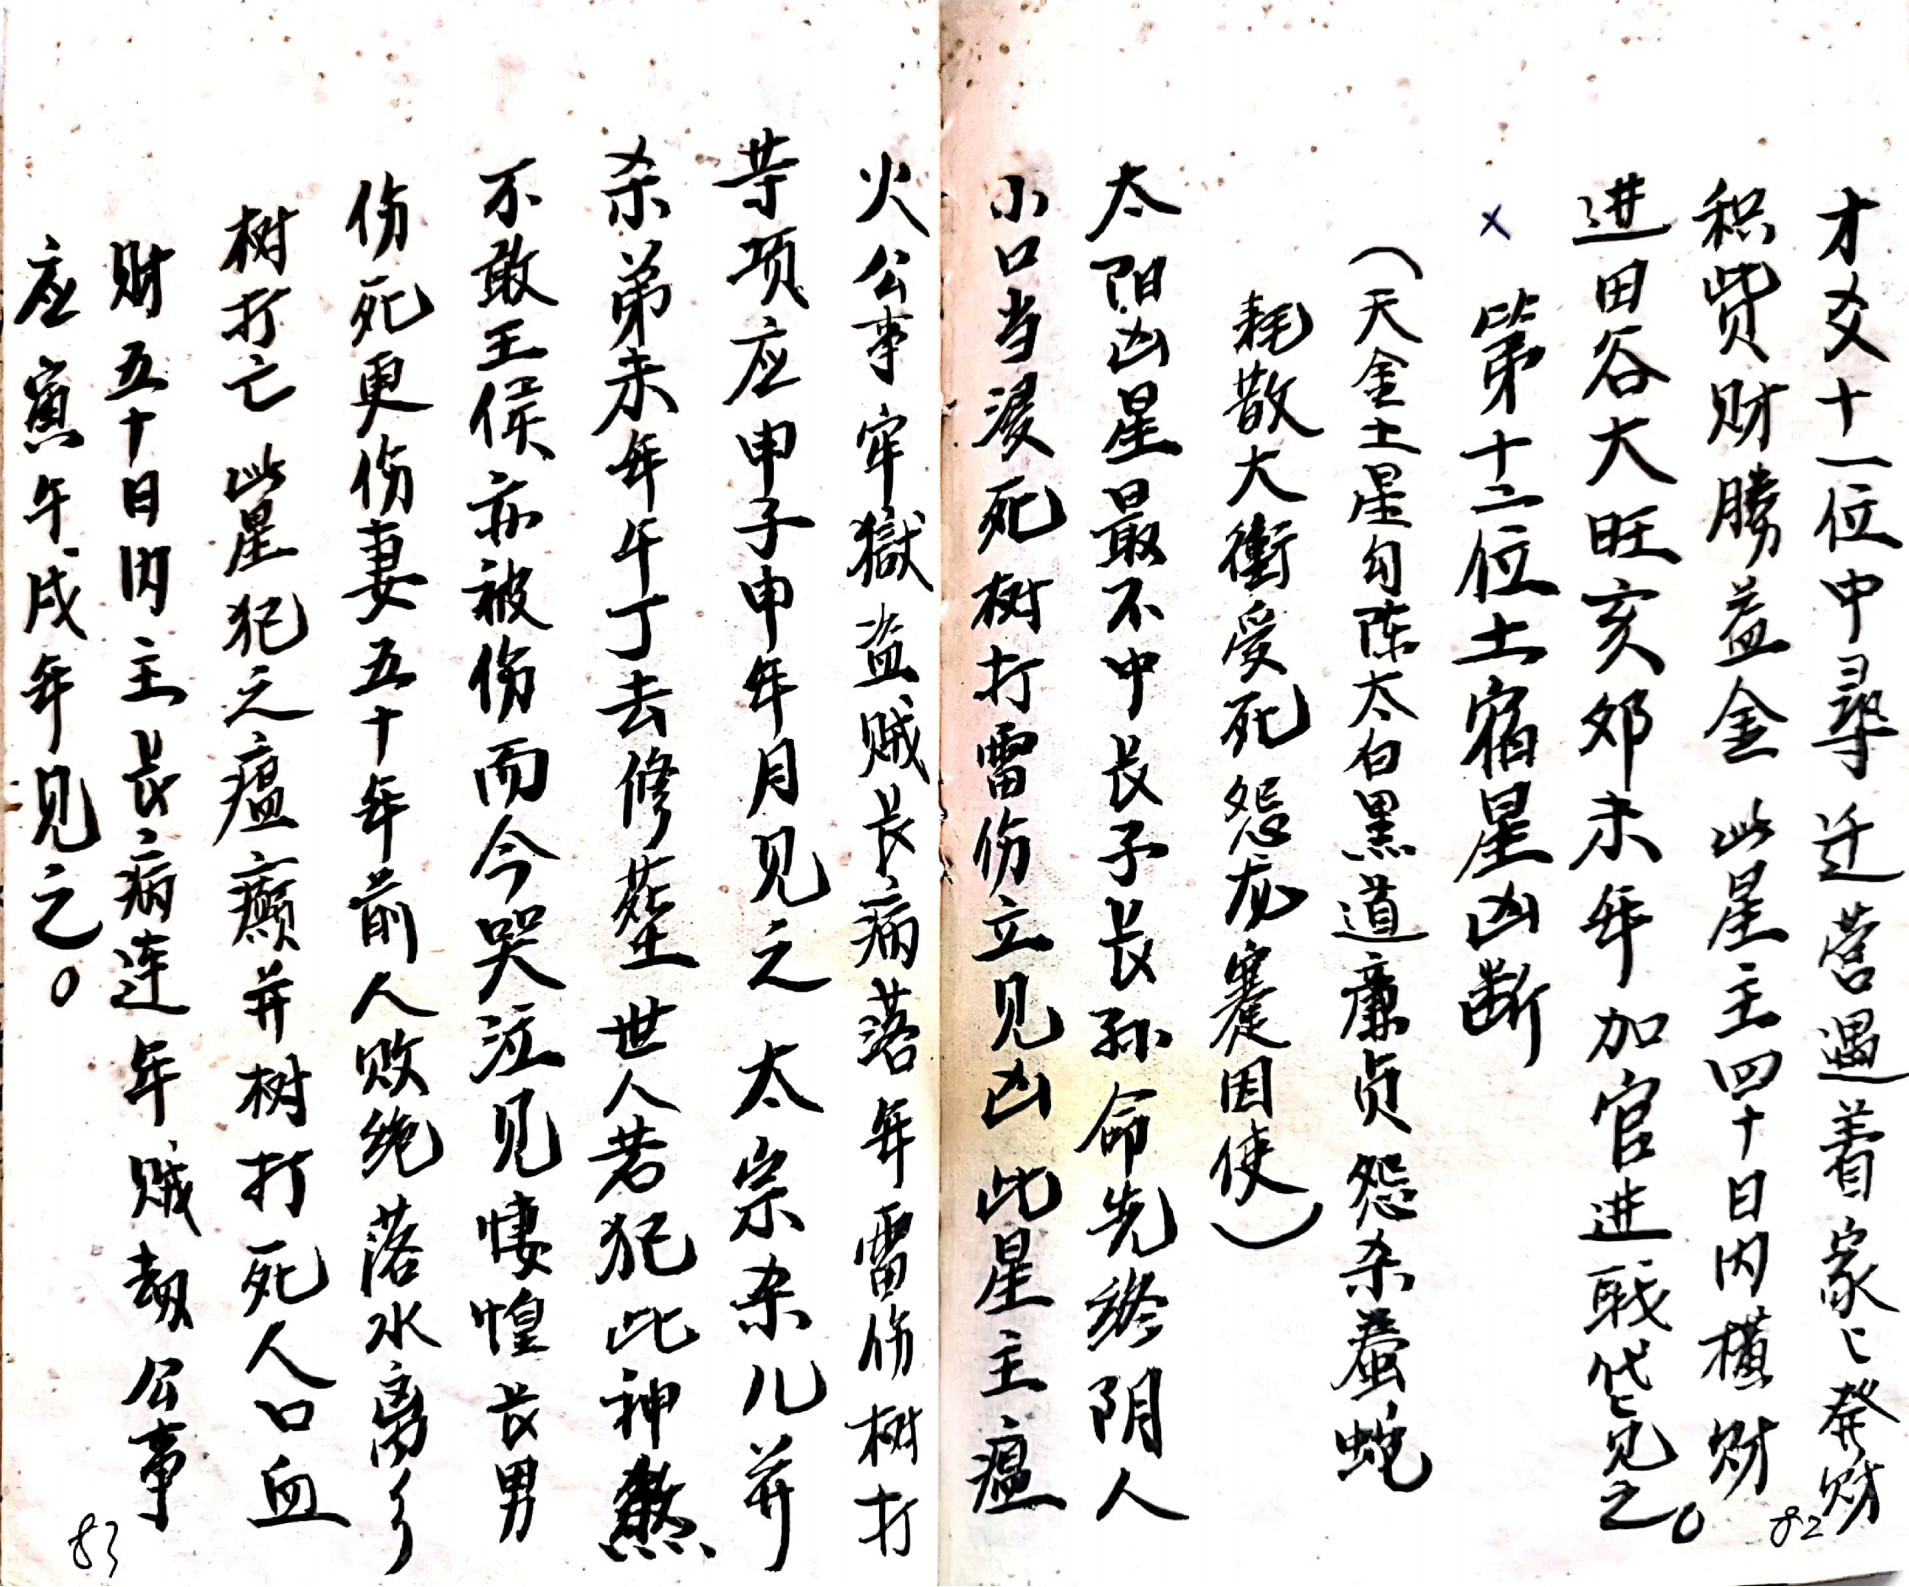 才爻十一位中尋迁营遇着家〻発财
积赀财勝益金 此星主四十日内横财
进田谷大旺亥夘未年加官进戝见之。
82
x
第十二位土宿星凶断
(天金土星勾陈太白黑道廉贞怨杀蚕蛇
耗散大衝受死怨 因使)
太阳凶星最不中长子长孙命先终阴人
小口当 死树打雷伤立见凶 此星主瘟
火公事牢獄盗贼长病落年雷伤树打
等项应申子申年月见之 太宗杀儿并
杀弟未年午丁去修 世人若犯此神煞
不敢王侯亦被伤而今哭泣见悽惶长男
伤死更伤妻五十年前人败绝落水离乡
树打亡 此星犯之瘟癫并树打死人口血
财五十日内主长病连年贼劫公事
应寅午戌年见之。
83